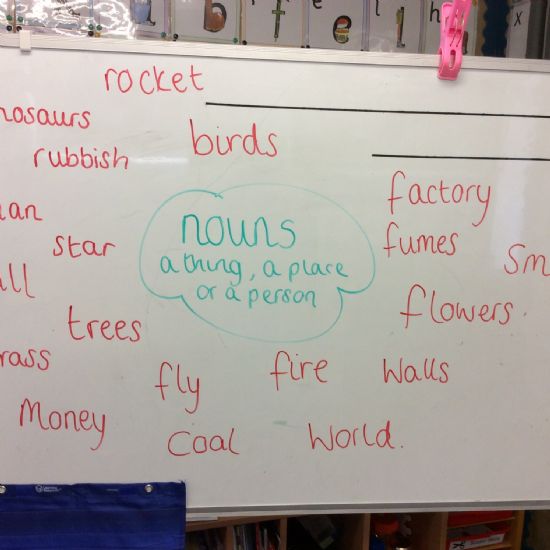 rocket
nosaurs
birds
rubbish
factory
an
nouns
fumes
star
a thing, a place
Sm
all
or a person
flowers.
trees
rass
fly
fire
Walls
Money
Coal
World.